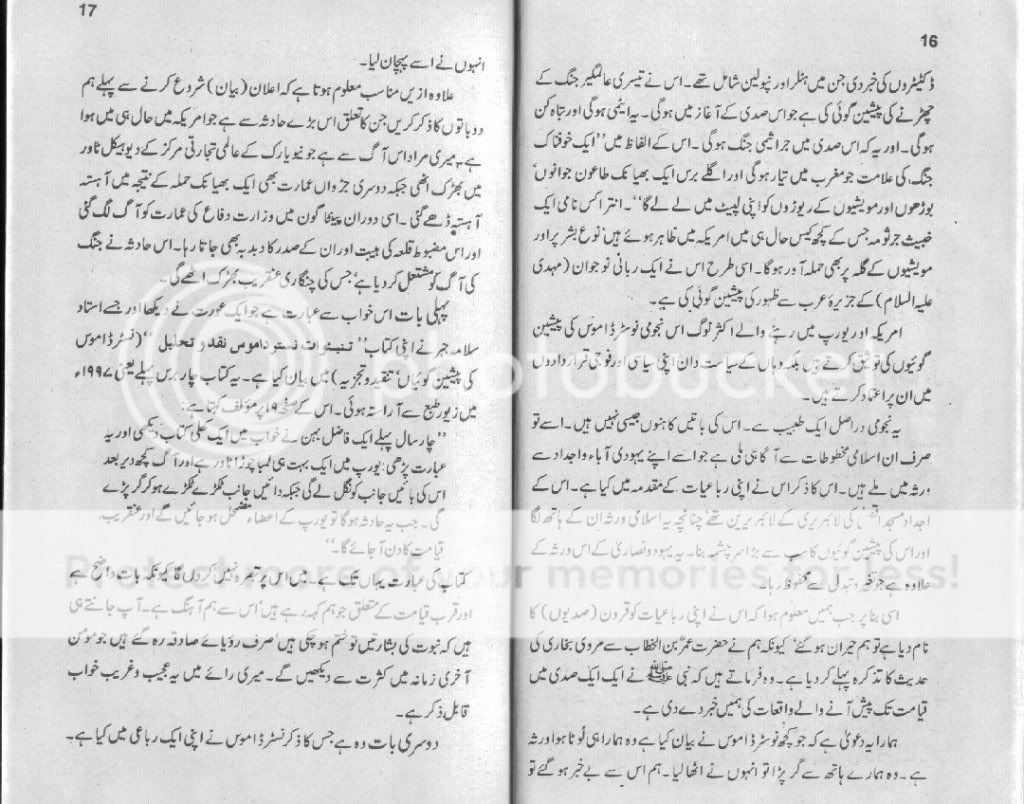 16
ڈکٹیٹروں کی خبر دی جن میں ہٹلر اور نپولین شامل تھے۔ اس نے تیسری عالمگیر جنگ کے
چھڑنے کی پیشین گوئی کی ہے جو اس صدی کے آغاز میں ہوگی۔ یہ ایٹمی ہوگی اور تباہ کن
ہوگی۔ اور یہ کہ اس صدی میں جراثیمی جنگ ہوگی۔ اس کے الفاظ میں ''ایک خوفناک
جنگ، کی علامت جو مغرب میں تیار ہوگی اور اگلے برس ایک بھیانک طاعون جوانوں'
بوڑھوں اور مویشیوں کے ریوڑوں کو اپنی لپیٹ میں لے لے گا''۔ انتھراکس نامی ایک
خبیث جرثومہ جس کے کچھ کیس حال ہی میں امریکہ میں ظاہر ہوئے ہیں' نوع بشر پر اور
مویشیوں کے گلہ پر بھی حملہ آور ہوگا۔ اسی طرح اس نے ایک ربانی نوجوان (مہدی
علیہ السلام) کے جزیرۂ عرب سے ظہور کی پیشین گوئی کی ہے۔
امریکہ اور یورپ میں رہنے والے اکثر لوگ اس نجومی نوسٹرڈاموس کی پیشین
گوئیوں کی توثیق کرتے ہیں بلکہ وہاں کے سیاست دان اپنی سیاسی اور فوجی قراردادوں
میں ان پر اعتماد کرتے ہیں۔
یہ نجومی دراصل ایک طبیب ہے۔ اس کی باتیں کاہنوں جیسی نہیں ہیں۔ اسے تو
صرف ان اسلامی مخطوطات سے آگاہی ملی ہے جو اسے اپنے یہودی آباء واجداد سے
ورثہ میں ملے ہیں۔ اس کا ذکر اس نے اپنی رباعیات کے مقدمہ میں کیا ہے۔ اس کے
اجداد مسجد اقصیٰ کی لائبریری کے لائبریرین تھے' چنانچہ یہ اسلامی ورثہ ان کے ہاتھ لگا
اور اس کی پیشین گوئیوں کا سب سے بڑا سرچشمہ بنا۔ یہ یہود ونصاریٰ کے اس ورثہ کے
علاوہ ہے جو تغیر وتبدل سے محفوظ رہا۔
اسی بنا پر جب ہمیں معلوم ہوا کہ اس نے اپنی رباعیات کو قرون (صدیوں) کا
نام دیا ہے تو ہم حیران ہوگئے' کیونکہ ہم نے حضرت عمرؓ بن الخطاب سے مروی بخاری کی
حدیث کا تذکرہ پہلے کر دیا ہے۔ وہ فرماتے ہیں کہ نبی ﷺ نے ایک ایک صدی میں
قیامت تک پیش آنے والے واقعات کی ہمیں خبر دے دی ہے۔
ہمارا یہ دعویٰ ہے کہ جو کچھ نوسٹرڈاموس نے بیان کیا ہے وہ ہمارا ہی لوٹا ہوا ورثہ
ہے۔ وہ ہمارے ہاتھ سے گر پڑا تو انہوں نے اٹھا لیا۔ ہم اس سے بے خبر ہوگئے تو
17
انہوں نے اسے پہچان لیا۔
علاوہ ازیں مناسب معلوم ہوتا ہے کہ اعلان (بیان) شروع کرنے سے پہلے ہم
دو باتوں کا ذکر کریں جن کا تعلق اس بڑے حادثہ سے ہے جو امریکہ میں حال ہی میں ہوا
ہے۔ میری مراد اس آگ سے ہے جو نیویارک کے عالمی تجارتی مرکز کے دیوہیکل ٹاور
میں بھڑک اٹھی جبکہ دوسری جڑواں عمارت بھی ایک بھیانک حملہ کے نتیجہ میں آہستہ
آہستہ ڈھے گئی۔ اسی دوران پینٹاگون میں وزارت دفاع کی عمارت کو آگ لگ گئی
اور اس مضبوط قلعہ کی ہیبت اور ان کے صدر کا دبدبہ بھی جاتا رہا۔ اس حادثہ نے جنگ
کی آگ کو مشتعل کر دیا ہے' جس کی چنگاری عنقریب بھڑک اٹھے گی۔
پہلی بات اس خواب سے عبارت ہے جو ایک عورت نے دیکھا اور جسے استاد
سلامہ جبر نے اپنی کتاب'' تنبؤات نسترداموس نقد و تحلیل ''(نسٹرڈاموس
کی پیشین گوئیاں' تنقید وتجزیہ) میں بیان کیا ہے۔ یہ کتاب چار برس پہلے یعنی ۱۹۹۷ء
میں زیور طبع سے آراستہ ہوئی۔ اس کے صفحہ ۹ پر مؤلف کہتا ہے:
''چار سال پہلے ایک فاضل بہن نے خواب میں ایک کھلی کتاب دیکھی اور یہ
عبارت پڑھی: یورپ میں ایک بہت ہی لمبا چوڑا ٹاور ہے اور آگ کچھ دیر بعد
اس کی بائیں جانب کو نگل لے گی جبکہ دائیں جانب ٹکڑے ٹکڑے ہو کر گر پڑے
گی۔ جب یہ حادثہ ہوگا تو یورپ کے اعضاء مضمحل ہو جائیں گے اور عنقریب
قیامت کا دن آ جائے گا۔''
کتاب کی عبارت یہاں تک ہے۔ میں اس پر تبصرہ نہیں کروں گا کیونکہ بات واضح ہے
اور قرب قیامت کے متعلق جو ہم کہہ رہے ہیں' اس سے ہم آہنگ ہے۔ آپ جانتے ہی
ہیں کہ نبوت کی بشارتیں تو ختم ہوچکی ہیں' صرف رؤیائے صادقہ رہ گئے ہیں جو مومن
آخری زمانہ میں کثرت سے دیکھیں گے۔ میری رائے میں یہ عجیب وغریب خواب
قابل ذکر ہے۔
دوسری بات وہ ہے جس کا ذکر نسٹرڈاموس نے اپنی ایک رباعی میں کیا ہے۔
photobucket
Protect more of your memories for less!